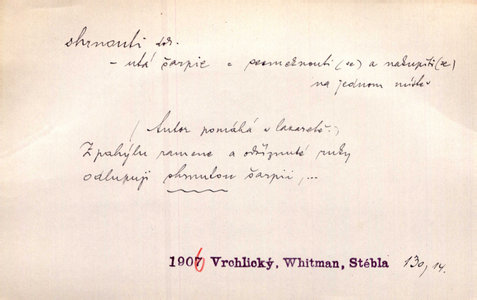 shrnouti dok.
- utá čarpie = semeknouti (se) a nakupiti (se)
na jednom místě
(Autor pomáhá v lazaretě.)
Z pahýlu ramene a odříznuté ruky
odlupuji shrnutou čarpii, ...
1906 Vrchlický, Whitman, Stébla 130, 14.